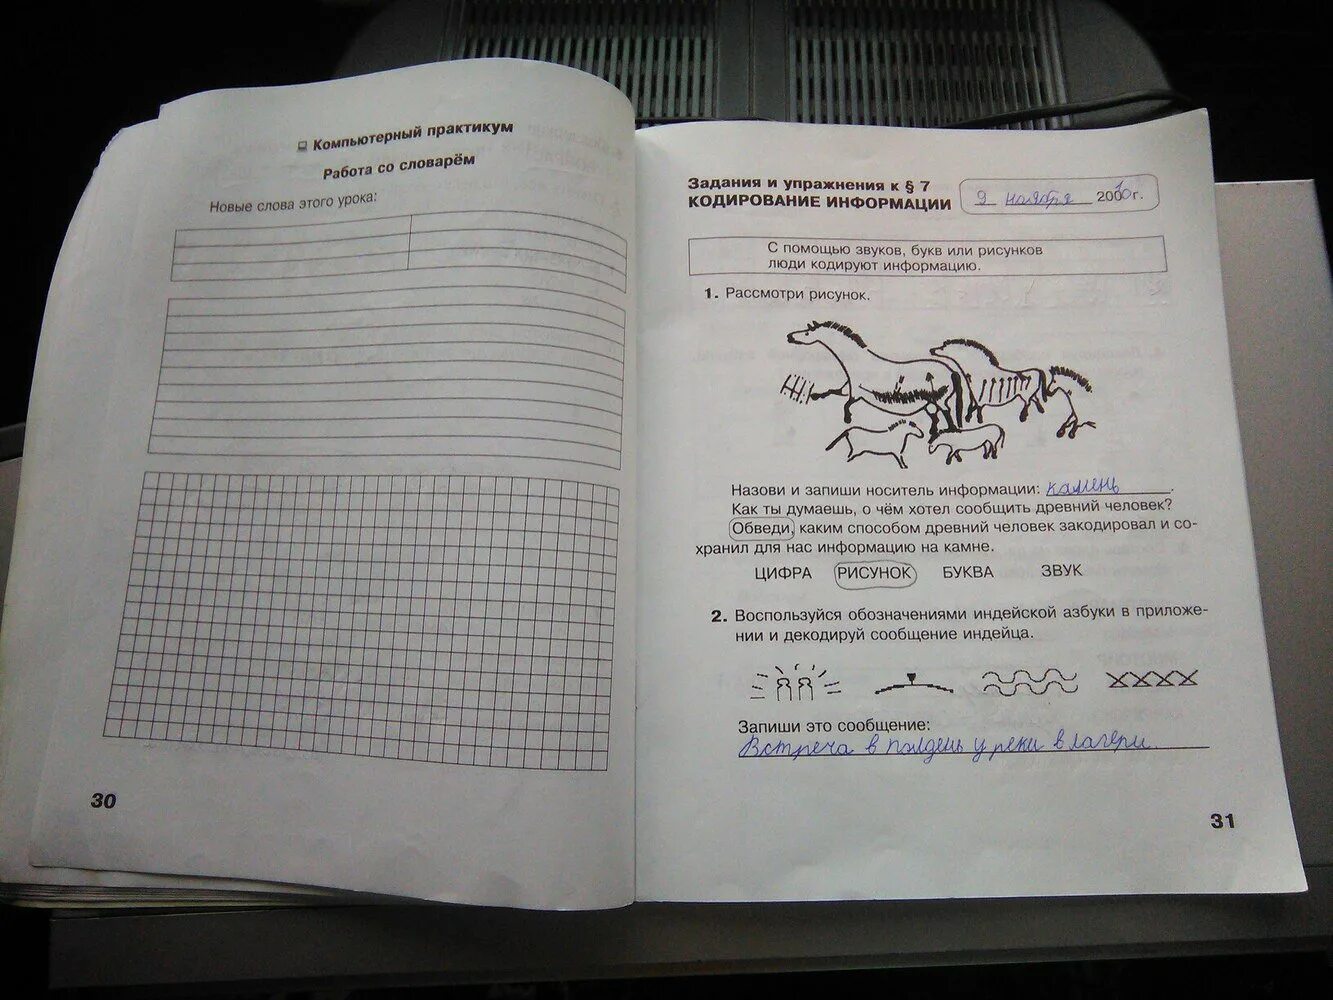 Компьютерный практикум
Работа со словарём
Новые слова этого урока:
30
Задания и упражнения к § 7
КОДИРОВАНИЕ ИНФОРМАЦИИ
9 ноября 2010 г.
С помощью звуков, букв или рисунков
люди кодируют информацию.
1. Рассмотри рисунок.
Назови и запиши носитель информации: камень.
Как ты думаешь, о чём хотел сообщить древний человек?
Обведи, каким способом древний человек закодировал и со-
хранил для нас информацию на камне.
ЦИФРА РИСУНОК БУКВА ЗВУК
2. Воспользуйся обозначениями индейской азбуки в приложе-
нии и декодируй сообщение индейца.
Запиши это сообщение:
Встреча в полдень у реки в лагери
31